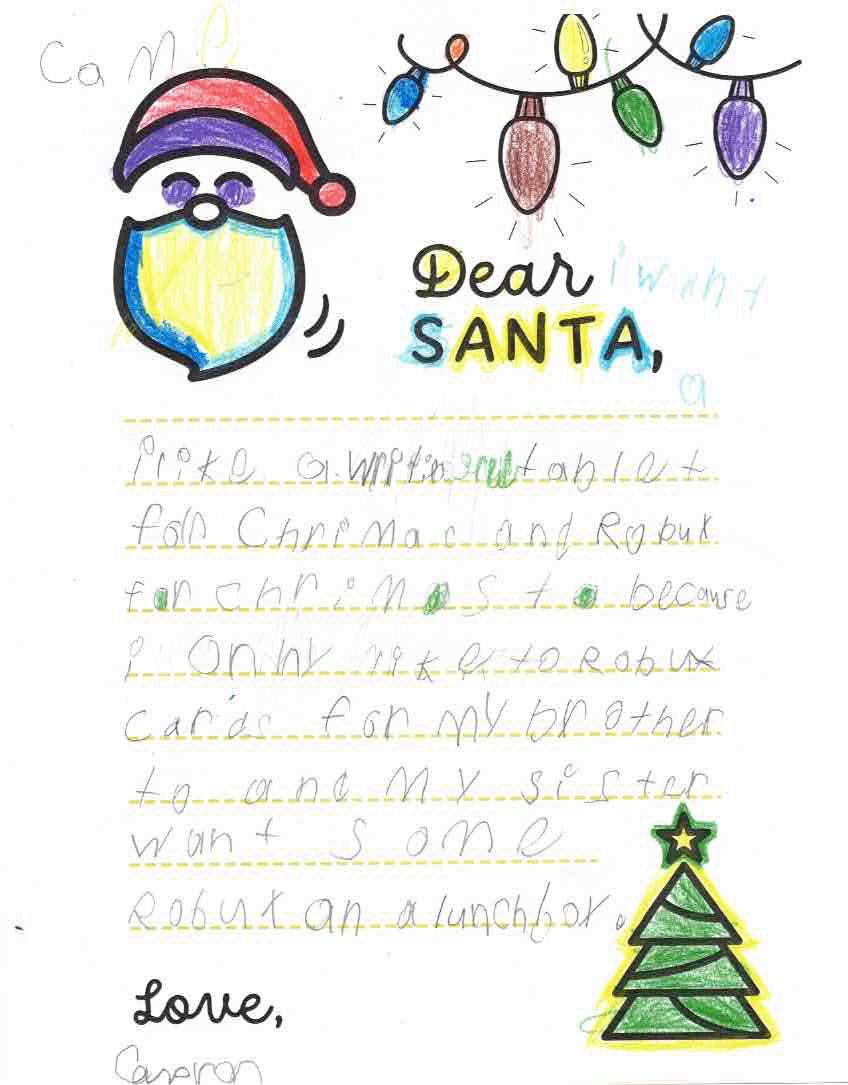 Cam
Dear i want
SANTA,
a
i like a writin tablet
for Chrimac and Robux
for chrimas to because
i onhy like to Robux
cards for my brother
to and My sister
want some
Robux an a lunchbox.
Love,
Cameron